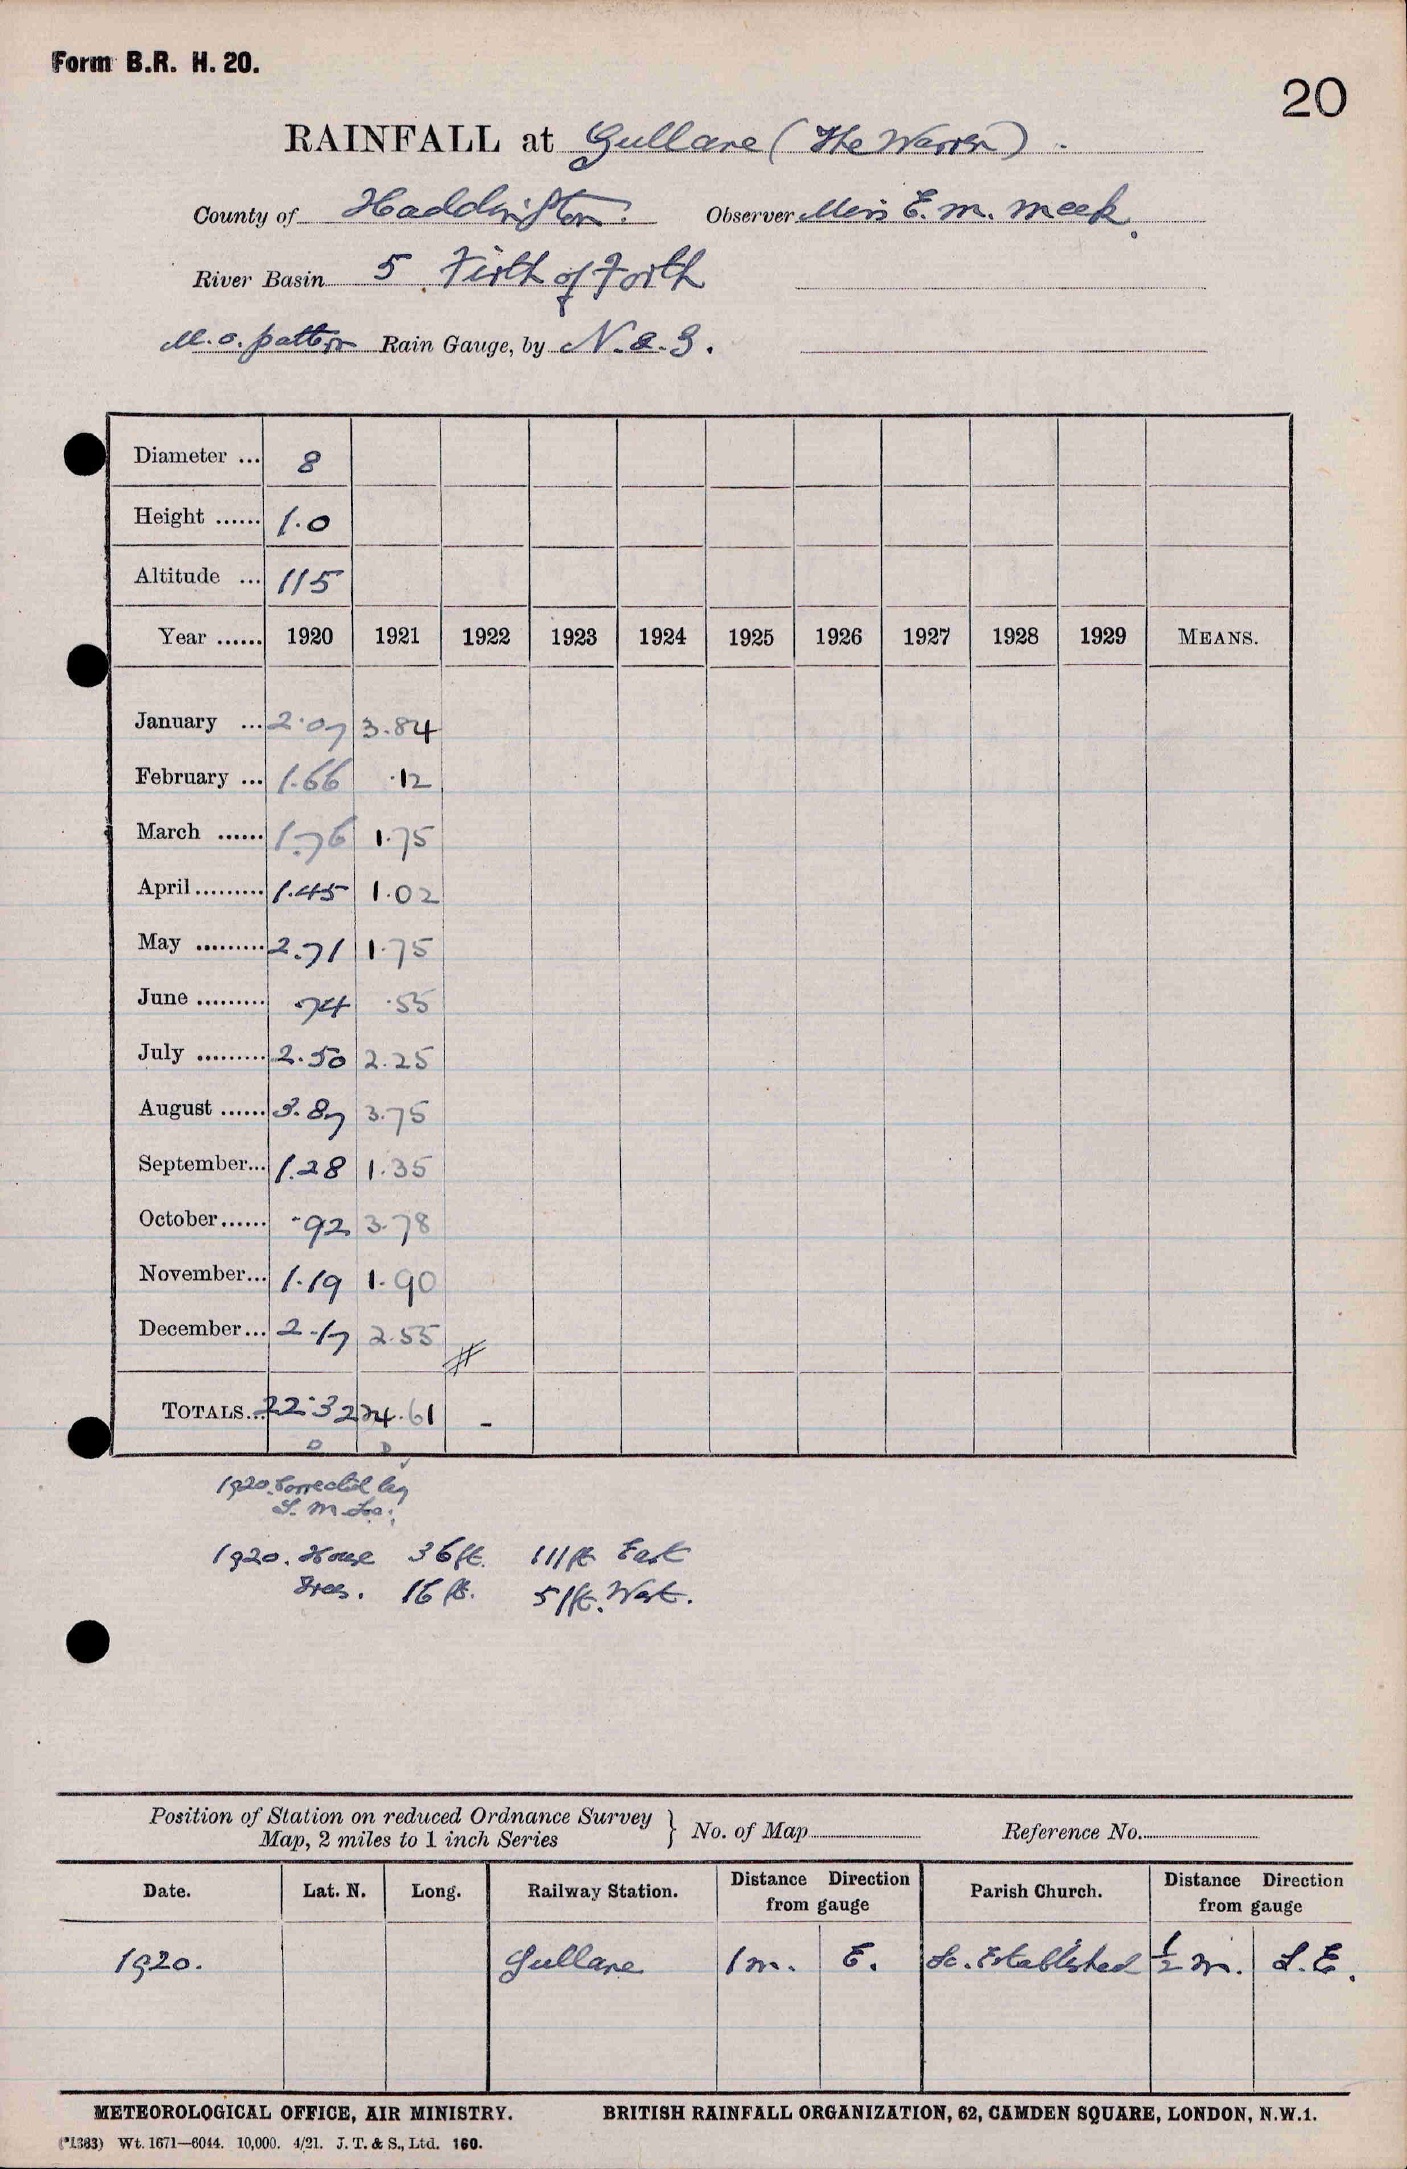 Form B.R. H. 20.
20
RAINFALL at Gullane (The Warren).
County of Haddington. Observer Miss E. M. Meek.
River Basin 5 Firth of Forth
M.O. pattern Rain Gauge, by N. & Z.
Diameter ... 8
Height ...... 1.0
Altitude ... 115
Year ...... 1920 1921 1922 1923 1924 1925 1926 1927 1928 1929 MEANS.
January ... 2.07 3.84
February ... 1.66 .12
March ...... 1.76 1.75
April......... 1.45 1.02
May ......... 2.71 1.75
June ......... .74 .55
July ......... 2.50 2.25
August ...... 3.87 3.75
September... 1.28 1.35
October...... .92 3.78
November... 1.19 1.90
December... 2.17 2.55
TOTALS... 22.32 24.61 -
D D
1920. Corrected by
1920. House 36ft. 111ft East
Trees. 16 ft. 51ft. West.
Position of Station on reduced Ordnance Survey
Map, 2 miles to 1 inch Series } No. of Map Reference No.
Date. Lat. N. Long. Railway Station. Distance Direction from gauge Parish Church. Distance Direction from gauge
1920. Gullane 1m. E. Sc. Established ½ m. S.E.
METEOROLOGICAL OFFICE, AIR MINISTRY. BRITISH RAINFALL ORGANIZATION, 62, CAMDEN SQUARE, LONDON, N.W.1.
(*1383) Wt. 1671—6044. 10,000. 4/21. J. T. & S., Ltd. 160.